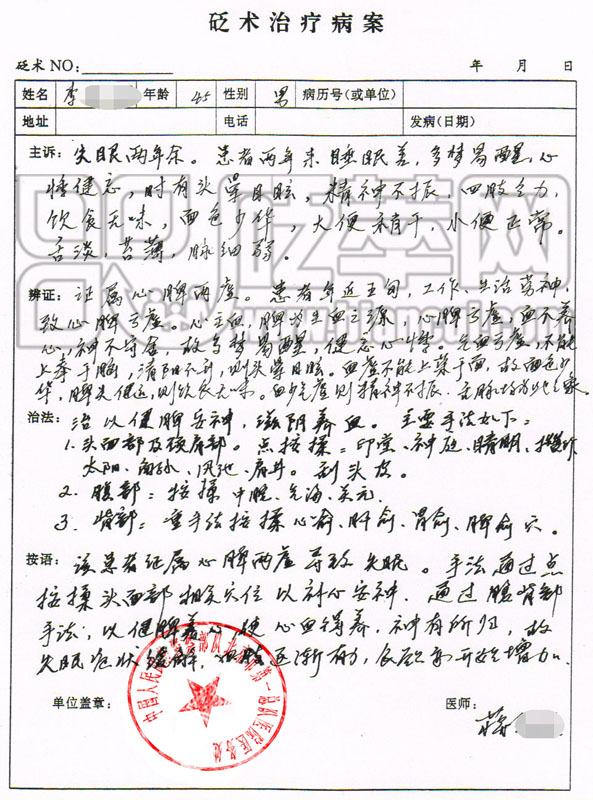 砭术治疗病案
砭术 NO: 年 月 日
姓名 李 年龄 45 性别 男 病历号(或单位)
地址 电话 发病(日期)
主诉: 失眠两年余。患者两年来睡眠差,多梦易醒,心
悸健忘,时有头晕目眩,精神不振,四肢乏力,
饮食无味,面色少华,大便稍干,小便正常。
舌淡,苔薄,脉细弱。
辨证: 证属心脾两虚。患者年近五旬,工作、生活劳神,
致心脾亏虚。心主血,脾为生血之源,心脾亏虚,血不养
心,神不守舍,故多梦易醒,健忘心悸。气血亏虚,不能
上奉于脑,清阳不升,则头晕目眩。血虚不能上荣于面,故面色少
华,脾失健运,则饮食无味。血少气虚则精神不振
治法: 治以健脾安神,滋阴养血。主要手法如下:
1. 头面部及颈肩部。点按揉:印堂、神庭、睛明、攒竹
太阳、风池、肩井。刮头皮。
2. 腹部:按揉中脘、气海、关元.
3. 背部:重手法按揉心俞、肝俞、胃俞、脾俞穴。
按语: 该患者证属心脾两虚导致失眠。手法通过点
按揉头面部相关穴位以补心安神,通过腹背部
手法,以健脾养心,使心血得养,神有所归,故
失眠症状缓解,逐渐有力,食欲亦开始增加。
单位盖章: 医师:
蒋
砭萃网